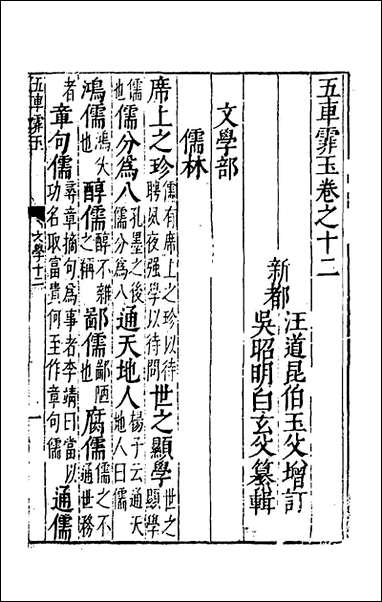 五車霏玉卷之十二
新都
汪道昆伯玉父增訂
吳昭明白玄父纂輯
文學部
儒林
席上之珍儒有席上之珍以待聘夙夜强學以待問世之顯學世之顯學
儒也儒分為八孔墨之後儒分為八通天地人楊子云通天地人曰儒
鴻儒鴻大也醇儒醇不雜之稱鄙儒鄙陋也腐儒儒之不通世務
者章句儒尋章摘句為事者李靖曰當以功名取富貴何至作章句儒通儒
五車霏玉
文學十二
一